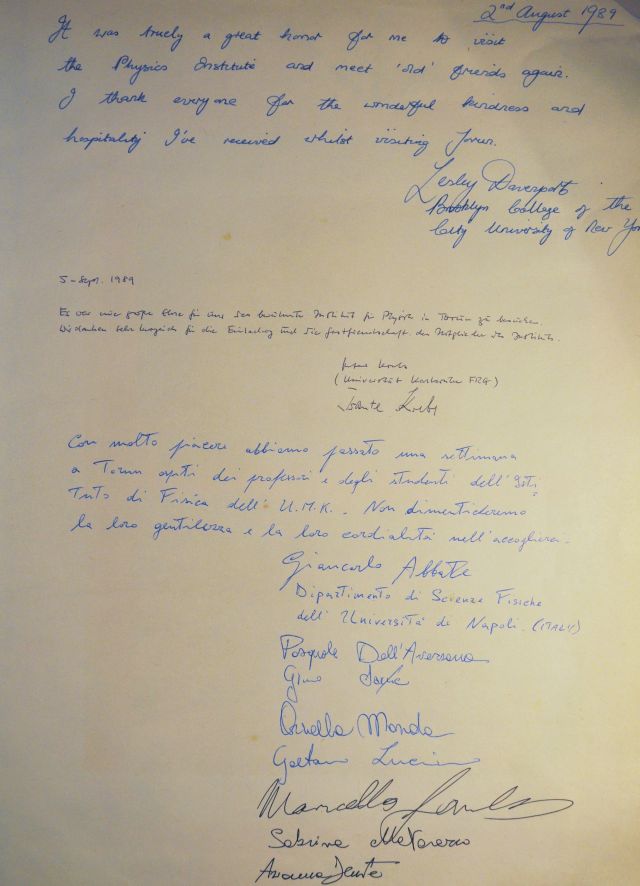 2nd August 1989
It was truely a great honor for me to visit
the Physics Institute and meet 'old' friends again.
I thank everyone for the wonderful kindness and
hospitality I've received whilst visiting Torun.
Lesley Davenport
Brooklyn College of the
City University of New York
5-Sept. 1989
Es war eine große Ehre für uns das berühmte Institut für Physik in Toruń zu besuchen.
Wir danken sehr herzlich für die Einladung und die Gastfreundschaft der Mitglieder des Instituts.
Krebs
(Universität Karlsruhe FRG)
Krebs
Con molto piacere abbiamo passato una settimana
a Torun ospiti dei professori e degli studenti dell'Isti
tuto di Fisica dell'U.M.K.. Non dimenticheremo
la loro gentilezza e la loro cordialità nell'accoglierci.
Giancarlo Abbate
Dipartimento di Scienze Fisiche
dell'Università di Napoli. (ITALY)
Pasquale Dell'Aversana
Gino
Ornella Monda
Gaetano
Marcello
Sabrina